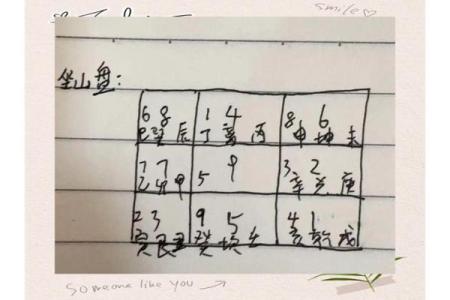 smile
坐山盘：
6 8 1 4 8 6
巳巽辰 丁离丙 申坤未
7 7 5 9 3 2
乙卯甲 辛兑庚
2 3 9 5 4 1
寅艮丑 癸坎壬 亥乾戌
someone like you